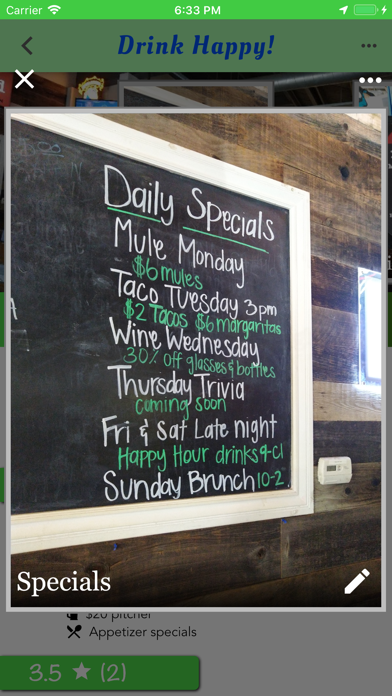 Carrier 6:33 PM
Drink Happy!
Daily Specials
Mule Monday
$6 mules
Taco Tuesday 3pm
$2 Tacos $6 margaritas
Wine Wednesday
30% off glasses & bottles
Thursday Trivia
coming soon
Fri & Sat Late night
Happy Hour drinks 9-cl
Sunday Brunch 10-2
Specials
$20 pitcher
Appetizer specials
3.5 ★ (2)